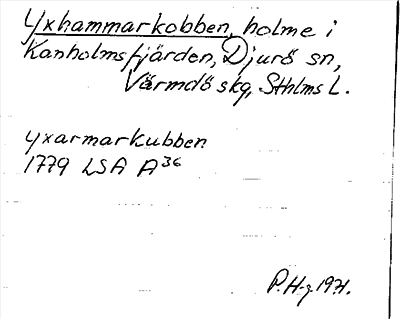 Yxhammarkobben, holme i
Kanholmsfjärden, Djurö sn,
Värmdö skg, Sthlms L.
Yxarmarkubben
1779 LSA A36
P. H-g 1971.